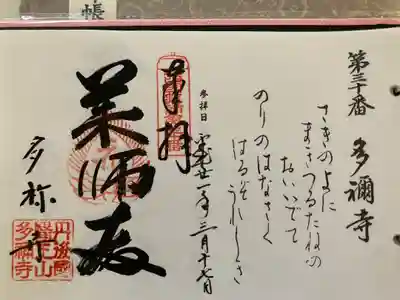 帳
第三十番 多禰寺
さきのよに
まきつるたねの
おいいでて
のりのはなさく
はるぞうれしき
参拝日
平成廿一年三月十七日
奉拝
薬師殿
多祢寺
丹後國
多禰寺